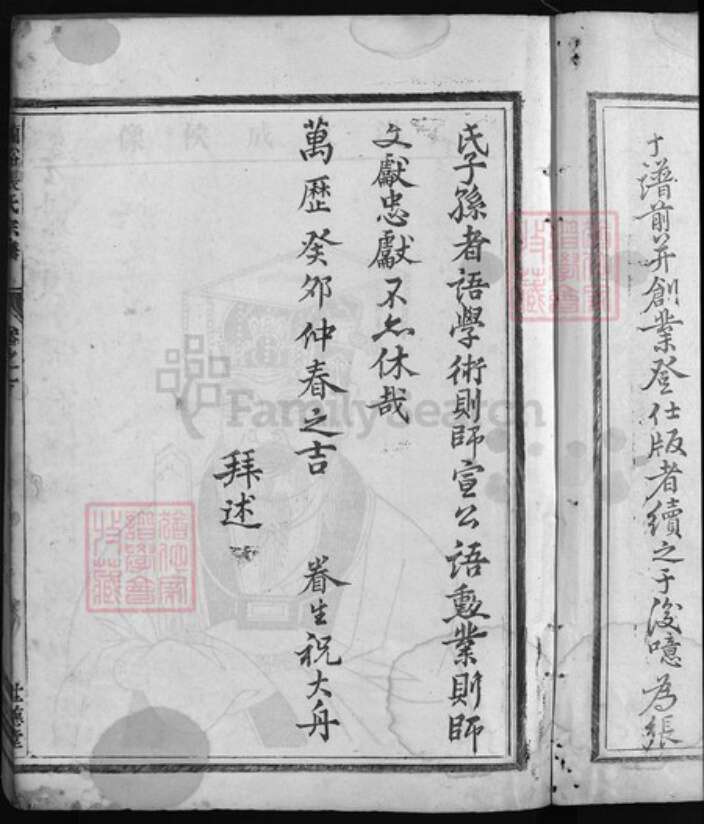 于譜前并創業登仕版者續之于後噫為張
氏子孫者語學術則師宣公語勳業則師
文獻忠獻不亦休哉
萬歷癸卯仲春之吉
眷生祝大舟
拜述
FamilySearch